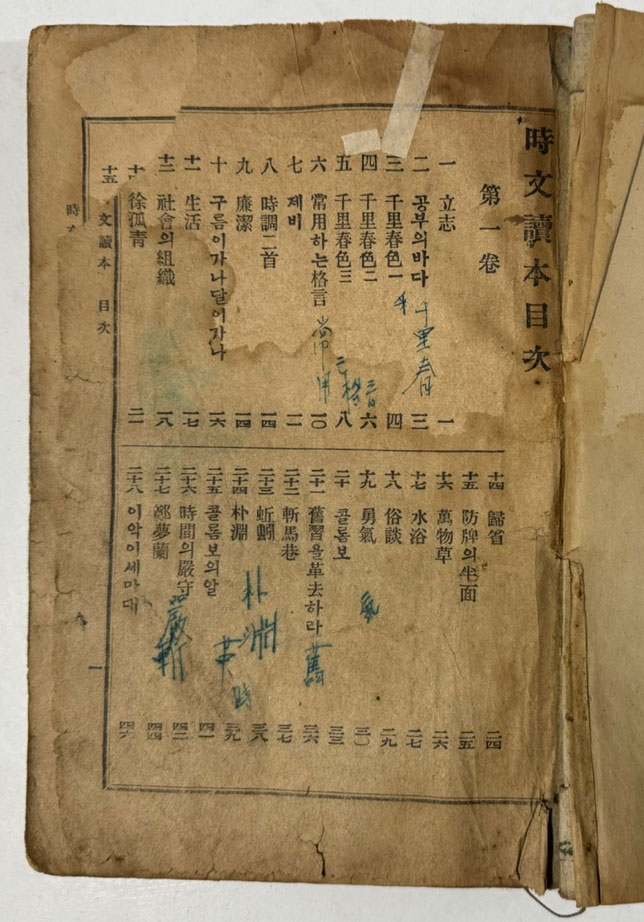 時文讀本目次
第一卷
一 立志 一
二 공부의바다 三
三 千里春色一 四
四 千里春色二 六
五 千里春色三 八
六 常用하는格言 一〇
七 제비 一一
八 時調二首 一四
九 廉潔 一四
十 구름이가나달이가나 一六
十一 生活 一七
十二 社會의組織 一八
徐孤青 二一
十四 歸省 二四
十五 防牌의半面 二五
十六 萬物草 二六
十七 水浴 二七
十八 俗談 二九
十九 勇氣 三〇
二十 콜롬보 三三
二十一 舊習을革去하라 三六
二十二 斬馬巷 三七
二十三 蚯蚓 三八
二十四 朴淵 三九
二十五 콜롬보의알 四一
二十六 時間의嚴守 四二
二十七 鄭夢蘭 四四
二十八 이약이세마대 四六
文讀本 目次
一
千里春
常用
格言
氣
舊
朴淵
時
嚴
斬